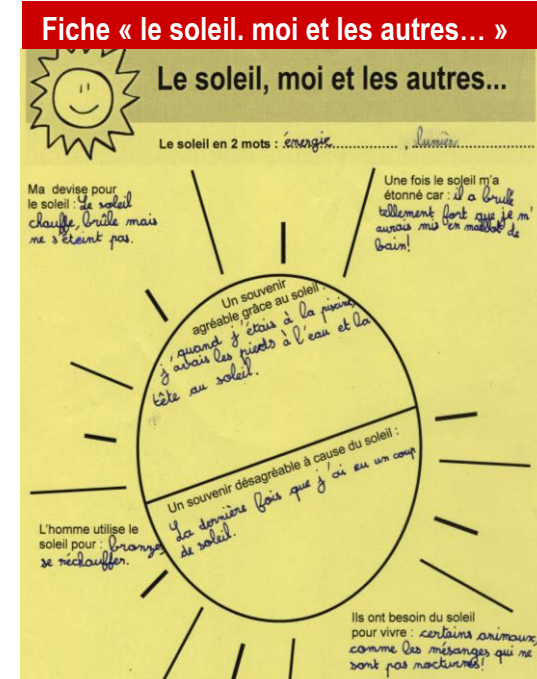 Fiche « le soleil. moi et les autres… »
Le soleil, moi et les autres...
Le soleil en 2 mots : énergie, lumière
Ma devise pour
le soleil : Le soleil
chauffe, brûle mais
ne s'éteint pas.
Une fois le soleil m'a
étonné car : il a brulé
tellement fort que je m'
aurais mis en maillot de
bain!
Un souvenir
agréable grâce au soleil :
quand j'étais à la piscine,
j'avais les pieds à l'eau et la
tête au soleil.
Un souvenir désagréable à cause du soleil :
La dernière fois que j'ai eu un coup
de soleil.
L'homme utilise le
soleil pour : bronzer,
se réchauffer.
Ils ont besoin du soleil
pour vivre : certains animaux,
comme les mésanges qui ne
sont pas nocturnes!